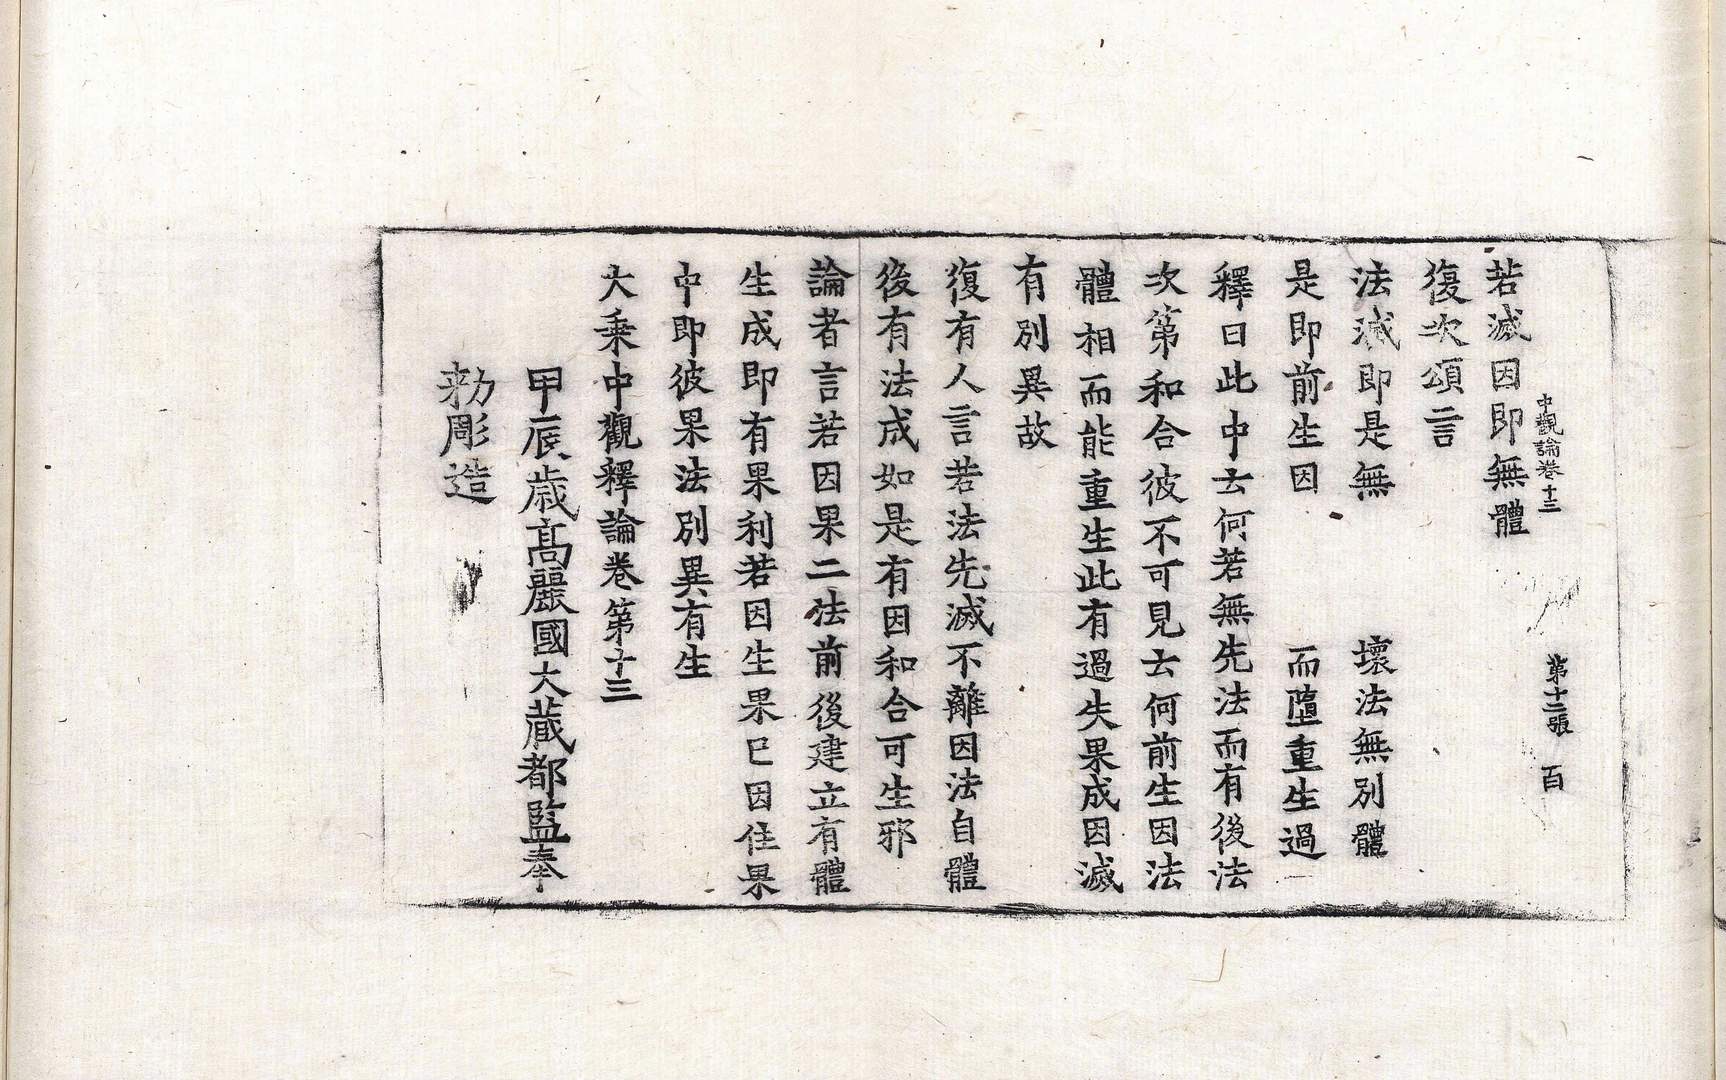 中觀論卷十三　第十二張　百
若滅因即無體
復次頌言
法滅即是無　壞法無別體
是即前生因　而墮重生過
釋曰此中云何若無先法而有後法
次第和合彼不可見云何前生因法
體相而能重生此有過失果成因滅
有別異故
復有人言若法先滅不離因法自體
後有法成如是有因和合可生邪
論者言若因果二法前後建立有體
生成即有果利若因生果已因住果
中即彼果法別異有生
大乘中觀釋論卷第十三
甲辰歲高麗國大藏都監奉
勑彫造